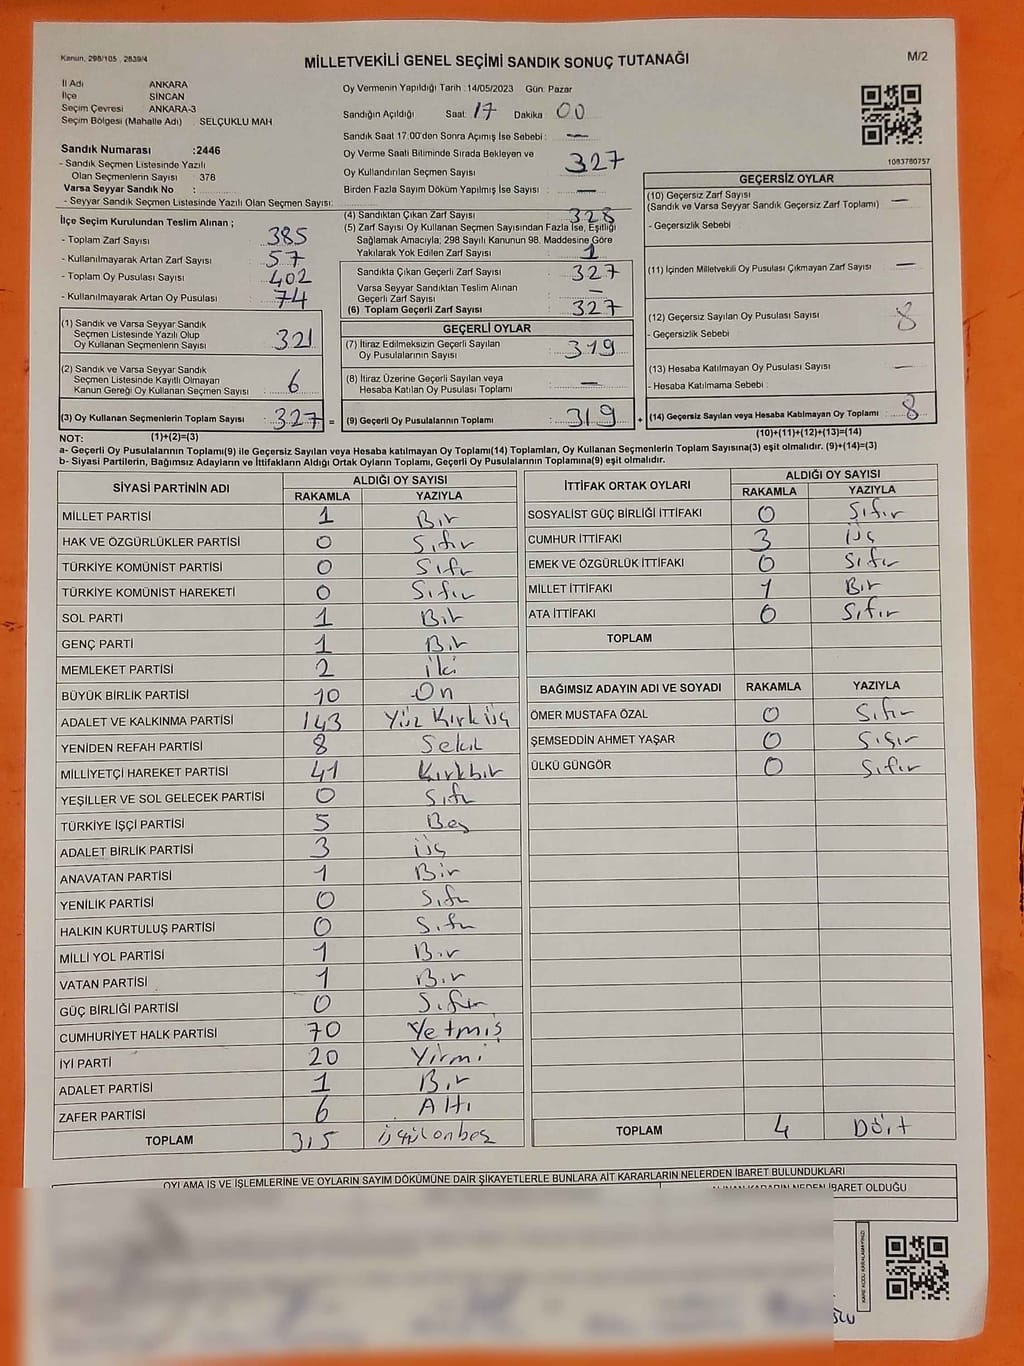 Kanun, 298/105 , 2839/4
MİLLETVEKİLİ GENEL SEÇİMİ SANDIK SONUÇ TUTANAĞI
M/2
İl Adı ANKARA
İlçe SİNCAN
Seçim Çevresi ANKARA-3
Seçim Bölgesi (Mahalle Adı) SELÇUKLU MAH
Sandık Numarası :2446
- Sandık Seçmen Listesinde Yazılı
Olan Seçmenlerin Sayısı 378
Varsa Seyyar Sandık No :
- Seyyar Sandık Seçmen Listesinde Yazılı Olan Seçmen Sayısı:
Oy Vermenin Yapıldığı Tarih :14/05/2023 Gün: Pazar
Sandığın Açıldığı Saat: 17 Dakika: 00
Sandık Saat 17:00'den Sonra Açımış İse Sebebi : —
Oy Verme Saati Bitiminde Sırada Bekleyen ve
Oy Kullandırılan Seçmen Sayısı : 327
Birden Fazla Sayım Döküm Yapılmış İse Sayısı : —
1083780757
İlçe Seçim Kurulundan Teslim Alınan ;
- Toplam Zarf Sayısı : 385
- Kullanılmayarak Artan Zarf Sayısı : 57
- Toplam Oy Pusulası Sayısı : 402
- Kullanılmayarak Artan Oy Pusulası : 74
(1) Sandık ve Varsa Seyyar Sandık
Seçmen Listesinde Yazılı Olup
Oy Kullanan Seçmenlerin Sayısı : 321
(2) Sandık ve Varsa Seyyar Sandık
Seçmen Listesinde Kayıtlı Olmayan
Kanun Gereği Oy Kullanan Seçmen Sayısı : 6
(3) Oy Kullanan Seçmenlerin Toplam Sayısı : 327 =
(4) Sandıktan Çıkan Zarf Sayısı : 328
(5) Zarf Sayısı Oy Kullanan Seçmen Sayısından Fazla İse, Eşitliği
Sağlamak Amacıyla; 298 Sayılı Kanunun 98. Maddesine Göre
Yakılarak Yok Edilen Zarf Sayısı : 1
Sandıkta Çıkan Geçerli Zarf Sayısı : 327
Varsa Seyyar Sandıktan Teslim Alınan
Geçerli Zarf Sayısı : —
(6) Toplam Geçerli Zarf Sayısı : 327
GEÇERLİ OYLAR
(7) İtiraz Edilmeksizin Geçerli Sayılan
Oy Pusulalarının Sayısı : 319
(8) İtiraz Üzerine Geçerli Sayılan veya
Hesaba Katılan Oy Pusulası Toplamı : —
(9) Geçerli Oy Pusulalarının Toplamı : 319 +
GEÇERSİZ OYLAR
(10) Geçersiz Zarf Sayısı
(Sandık ve Varsa Seyyar Sandık Geçersiz Zarf Toplamı) : —
- Geçersizlik Sebebi :
(11) İçinden Milletvekili Oy Pusulası Çıkmayan Zarf Sayısı : —
(12) Geçersiz Sayılan Oy Pusulası Sayısı : 8
- Geçersizlik Sebebi :
(13) Hesaba Katılmayan Oy Pusulası Sayısı : —
- Hesaba Katılmama Sebebi :
(14) Geçersiz Sayılan veya Hesaba Katılmayan Oy Toplamı : 8
NOT: (1)+(2)=(3) (10)+(11)+(12)+(13)=(14)
a- Geçerli Oy Pusulalarının Toplamı(9) ile Geçersiz Sayılan veya Hesaba katılmayan Oy Toplamı(14) Toplamları, Oy Kullanan Seçmenlerin Toplam Sayısına(3) eşit olmalıdır. (9)+(14)=(3)
b- Siyasi Partilerin, Bağımsız Adayların ve İttifakların Aldığı Ortak Oyların Toplamı, Geçerli Oy Pusulalarının Toplamına(9) eşit olmalıdır.
SİYASİ PARTİNİN ADI ALDIĞI OY SAYISI
RAKAMLA YAZIYLA
MİLLET PARTİSİ 1 Bir
HAK VE ÖZGÜRLÜKLER PARTİSİ 0 Sıfır
TÜRKİYE KOMÜNİST PARTİSİ 0 Sıfır
TÜRKİYE KOMÜNİST HAREKETİ 0 Sıfır
SOL PARTİ 1 Bir
GENÇ PARTİ 1 Bir
MEMLEKET PARTİSİ 2 iki
BÜYÜK BİRLİK PARTİSİ 10 On
ADALET VE KALKINMA PARTİSİ 143 Yüz Kırk üç
YENİDEN REFAH PARTİSİ 8 Sekiz
MİLLİYETÇİ HAREKET PARTİSİ 41 Kırkbir
YEŞİLLER VE SOL GELECEK PARTİSİ 0 Sıfır
TÜRKİYE İŞÇİ PARTİSİ 5 Beş
ADALET BİRLİK PARTİSİ 3 üç
ANAVATAN PARTİSİ 1 Bir
YENİLİK PARTİSİ 0 Sıfır
HALKIN KURTULUŞ PARTİSİ 0 Sıfır
MİLLİ YOL PARTİSİ 1 Bir
VATAN PARTİSİ 1 Bir
GÜÇ BİRLİĞİ PARTİSİ 0 Sıfır
CUMHURİYET HALK PARTİSİ 70 Yetmiş
İYİ PARTİ 20 Yirmi
ADALET PARTİSİ 1 Bir
ZAFER PARTİSİ 6 Altı
TOPLAM 315 üçyüzonbeş
İTTİFAK ORTAK OYLARI ALDIĞI OY SAYISI
RAKAMLA YAZIYLA
SOSYALİST GÜÇ BİRLİĞİ İTTİFAKI 0 Sıfır
CUMHUR İTTİFAKI 3 üç
EMEK VE ÖZGÜRLÜK İTTİFAKI 0 Sıfır
MİLLET İTTİFAKI 1 Bir
ATA İTTİFAKI 0 Sıfır
TOPLAM
BAĞIMSIZ ADAYIN ADI VE SOYADI RAKAMLA YAZIYLA
ÖMER MUSTAFA ÖZAL 0 Sıfır
ŞEMSEDDİN AHMET YAŞAR 0 Sıfır
ÜLKÜ GÜNGÖR 0 Sıfır
TOPLAM 4 Dört
OYLAMA İŞ VE İŞLEMLERİNE VE OYLARIN SAYIM DÖKÜMÜNE DAİR ŞİKAYETLERLE BUNLARA AİT KARARLARIN NELERDEN İBARET BULUNDUKLARI
ALINAN KARARIN NEDEN İBARET OLDUĞU